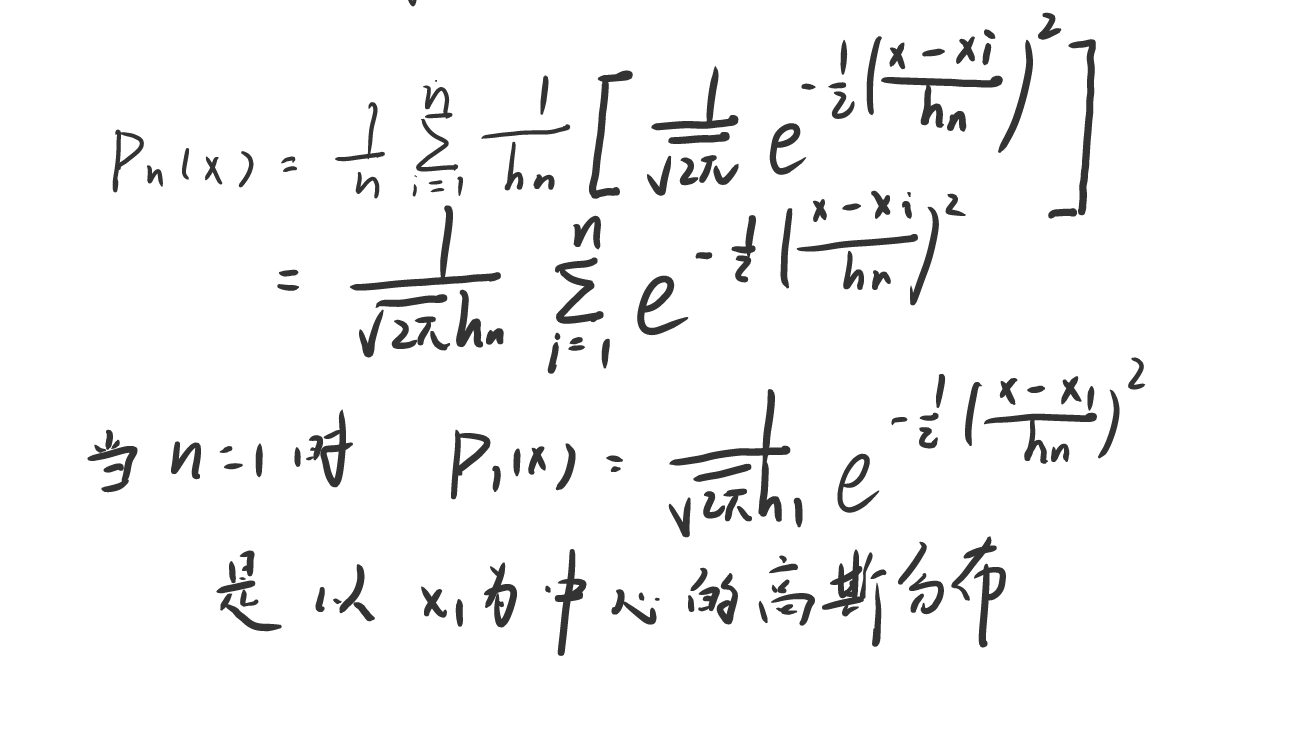 Pn(x) = \frac{1}{n} \sum_{i=1}^{n} \frac{1}{hn} [ \frac{1}{\sqrt{2π}} e^{-\frac{1}{2}(\frac{x-xi}{hn})^2} ]
= \frac{1}{\sqrt{2π}hn} \sum_{i=1}^{n} e^{-\frac{1}{2}(\frac{x-xi}{hn})^2}
当 n=1 时 P_1(x) = \frac{1}{\sqrt{2π}h_1} e^{-\frac{1}{2}(\frac{x-x_1}{hn})^2}
是以 x_1 为中心的高斯分布